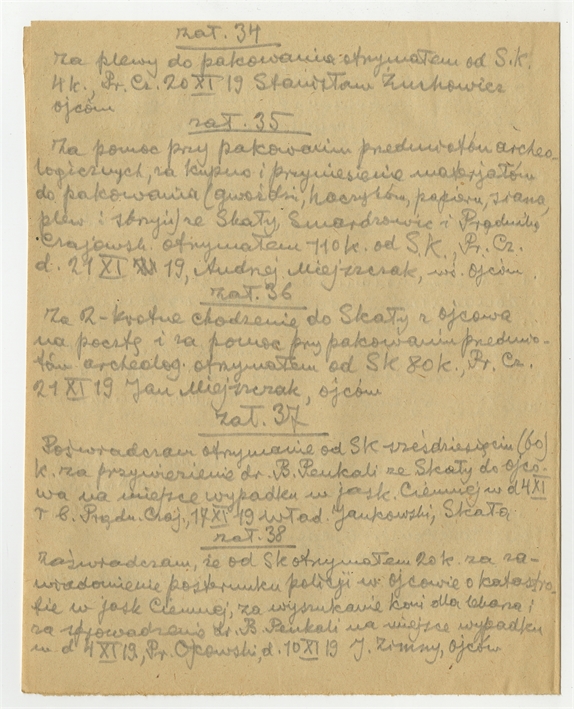 zał. 34
Za plewy do pakowania otrzymałem od S.K.
4k., Pr. Cz. 20 XI 19 Stanisław Żuchowicz
Ojców
zał. 35
Za pomoc przy pakowaniu przedmiotów archeo-
logicznych, za kupno i przyniesienie materjałów
do pakowania (gwoździ, haczyków, papieru, siana,
plew i zbryji) ze Skały, Smardzowic i Prądnika
Czajowsk. otrzymałem 110 k. od S.K., Pr. Cz.
d. 21 XI 19, Andrzej Miejszczak, wś. Ojców.
zał. 36
Za 2-krotne chodzenie do Skały z Ojcowa
na pocztę i za pomoc przy pakowaniu przedmio-
tów archeolog. otrzymałem od SK 80 k., Pr. Cz.
21 XI 19 Jan Miejszczak, Ojców
zał. 37
Poświadczam otrzymanie od SK sześdziesięciu (60)
k. za przywiezienie dr. B. Penkali ze Skały do Ojco-
wa na miejsce wypadku w jask. Ciemnej w d 4 XI
r b. Prądn. Czaj., 17 XI 19 Wład. Jankowski, Skała
zał. 38
Zaświadczam, że od SK otrzymałem 20 k. za za-
wiadomienie posterunku policyji w Ojcowie o katastro-
fie w jask Ciemnej, za wyszukanie koni dla lekarza i
za sprowadzenie dr. B. Penkali na miejsce wypadku
w d 4 XI 19, Pr. Ojcowski, d. 10 XI 19 J. Zimny, Ojców